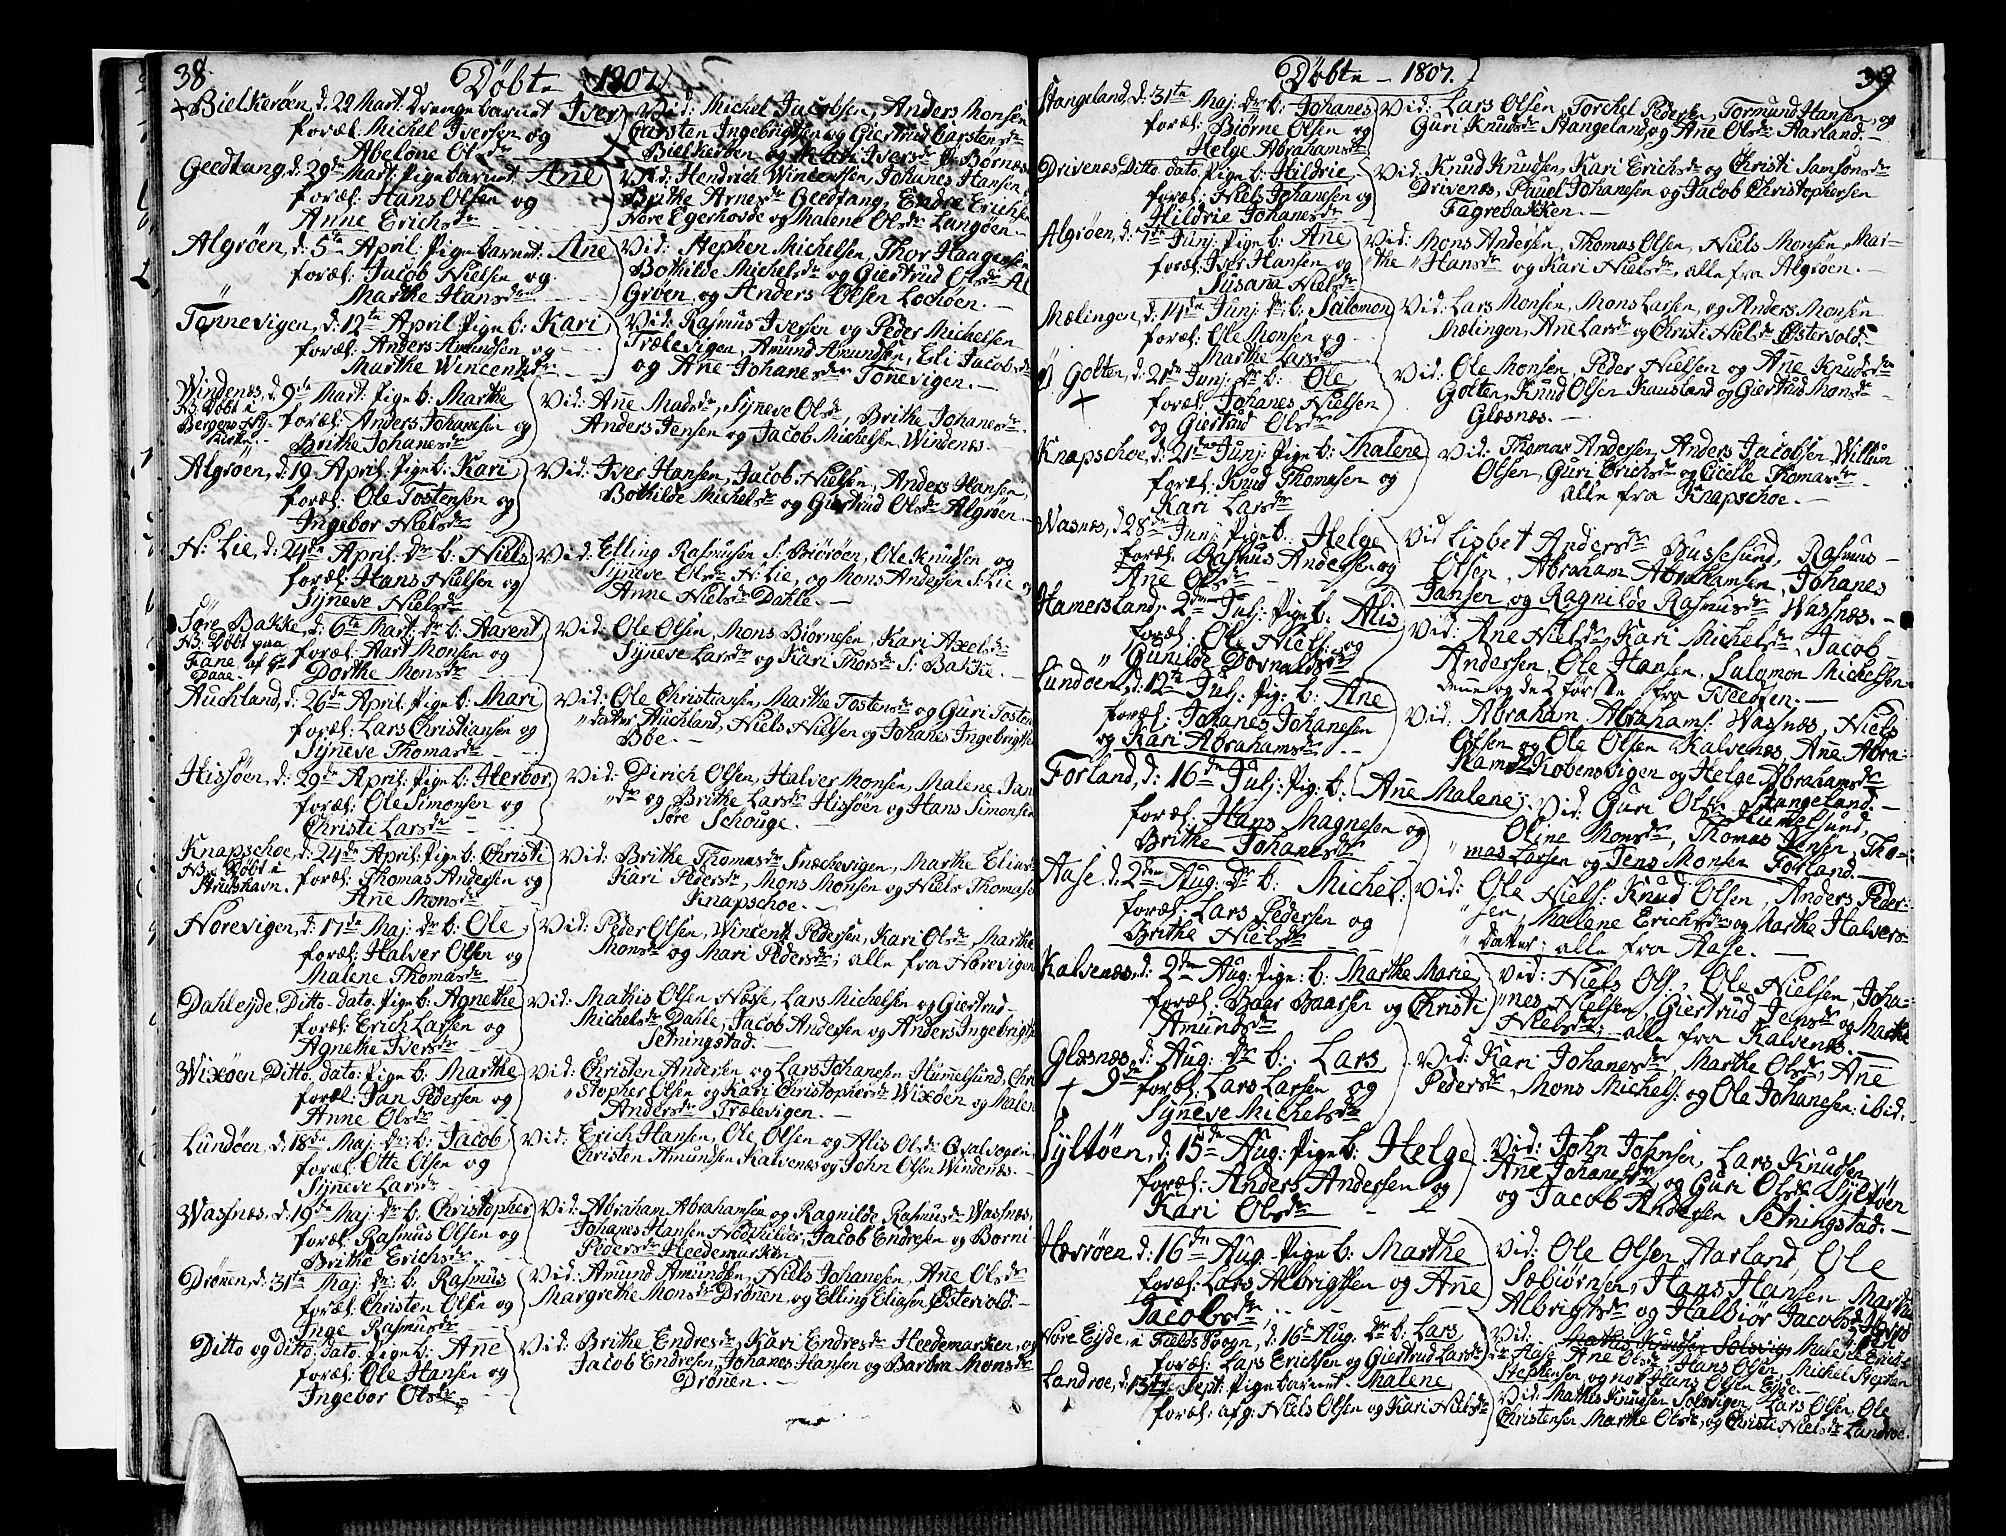 38.
Döbte 1807
+ Bielkeröen, d. 22 Mart. Drengebarnet Iver
foræl: Michel Iversen og
Abelone Olsdr
Vid: Michel Jacobsen, Anders Monsen
Carsten Ingebrigtsen og Giertrud Carstensdr
Bielkeröen og Iversdr Börnæs
Geedtang, d: 29de Mart. Pigebarnet Ane
foræl: Hans Olsen og
Anne Erichsdr
Vid: Hendrich Wincensen, Johanes Hansen,
Brithe Arnesdr Geedtang, Endre Erichsen
Nore Egerhovde og Malene Olsdr Langöen
Algröen, d: 5te April. Pigebarnet: Ane
foræl: Jacob Nielsen og
Marthe Hansdr
Vid: Stephen Michelsen, Thor Haagensen
Bothilde Michelsdr og Giertrud Olsdr Al
Gröen, og Anders Olsen Lochöen.
Tönnevigen, d: 12te April. Pige b: Kari
foræl: Anders Amundsen og
Marthe Wincentsdr
Vid: Rasmus Iversen og Peder Michelsen
Trælevigen, Amund Amundsen, Eli Jacobsdr
og Ane Johanesdr Tönevigen.
Windenes, d 9de Mart. Pige b: Marthe
NB. Döbt i
Bergens Ny-
Kirke
foræl: Anders Johanesen og
Brithe Johanesdr
Vid: Ane Madsdr, Synneve Olsdr, Brithe Johanesdr
Anders Jensen og Jacob Michelsen, Windenes.
Algröen, d: 19 April. Pige b: Kari
foræl: Ole Tostensen og
Ingebor Nielsdr
Vid: Iver Hansen, Jacob Nielsen, Anders Hansen,
Bothilde Michelsdr og Giertrud Olsdr Algröen.
N: Lie, d: 24de April. Dr b: Niels
foræl: Hans Nielsen og
Synneve Nielsdr
Vid: Elling Rasmusen S: Biöröen, Ole Knudsen og
Synneve Olsdr N: Lie, og Mons Andersen S: Lie og
Anne Nielsdr Dahle.
Söre Bakke, d: 6te Mart. Dr b: Aarent
NB. Döbt paa
Fane af Hr
Daae.
foræl: Aart Monsen og
Dorthe Monsdr
Vid: Ole Olsen, Mons Biörnesen, Kari Axelsdr
Synneve Larsdr og Kari Thorsdr S: Bakke.
Auchland, d: 26de April. Pige b: Mari
foræl: Lars Christiansen og
Synneve Thomasdr
Vid: Ole Christiansen, Marthe Tostensdr og Guri Tosten
datter Auchland, Niels Nielsen og Johanes Ingebrigtsen
Böe.
Hissöen, d: 29de April. Pige b: Herbor
foræl: Ole Simonsen og
Christi Larsdr
Vid: Dirich Olsen, Halver Monsen, Malene Jan
dr og Brithe Larsdr Hissöen og Hans Simonsen
Söre Schouge.
Knapschoe, d: 24de April. Pige b: Christi
NB. Döbt i
Strushavn.
foræl: Thomas Andersen og
Ane Monsdr
Vid: Brithe Thomasdr Snæchevigen, Marthe Elines
Kari Pedersdr, Mons Monsen og Niels Thomasen
Knapschoe.
Norevigen, d: 17de Maj: Dr b: Ole
foræl: Halver Olsen og
Malene Thomasdr
Vid: Peder Olsen, Wincentz Pedersen, Kari Olsdr, Marthe
Monsdr og Mari Pedersdr; alle fra Norevigen
Dahleyde, Ditto dato. Pige b: Agnethe
foræl: Erich Larsen og
Agnethe Iversdr
Vid: Mathis Olsen Næsse, Lars Michelsen og Giertrud
Michelsdr Dahle, Jacob Andersen og Anders Ingebrigtsen
Setningstad.
Wixöen, Ditto dato. Pige b: Marthe
foræl: Jan Pedersen og
Anne Olsdr
Vid: Christen Andersen og Lars Johanesen Hummelsund, Chri
stopher Olsen og Kari Christophersdr Wixöen og Malene
Andersdr Trælevigen.
Lundöen, d: 18de Maj: Dr b: Jacob
foræl: Otte Olsen og
Synneve Larsdr
Vid: Erich Hansen, Ole Olsen og Alis Olsdr Qvalvogen,
Christen Amundsen Kalvenes og John Olsen Windenæs.
Wasnæs, d: 19de Maj: Dr b: Christopher
foræl: Rasmus Olsen og
Brithe Erichsdr
Vid: Abraham Abrahamsen og Ragnilde Rasmusdr Wasnæs,
Johanes Hansen, Jacob Endresen og Borni
Pedersdr Heedemarken
Drönen, d: 31te Maj: Dr b: Rasmus
foræl: Christen Olsen og
Inge Rasmusdr
Vid: Amund Amundsen, Niels Johanesen, Ane Olsdr
Margrethe Monsdr Drönen, og Elling Eliasen Östervold.
Ditto og ditto dato. Pige b: Ane
foræl: Ole Hansen og
Ingebor Olsdr
Vid: Brithe Endresdr, Kari Endresdr Heedemarken, og
Jacob Endresen, Johanes Hansen og Barbra Monsdr
Drönen.
Döbte 1807.
39
Stangeland, d: 31te Maj: Dr b: Johanes
foræl: Biörne Olsen og
Helge Abrahamsdr
Vid: Lars Olsen, Torchel Pedersen, Tormund Hansen, og
Guri Knudsdr Stangeland, og Ane Olsdr Aarland.
Drivenæs, Ditto dato. Pige b: Hildrie
foræl: Niels Johanesen og
Hildrie Johanesdr
Vid: Knud Knudsen, Kari Erichsdr og Christi Samsonsdr
Drivenæs, Pauel Johanesen og Jacob Christophersen
Fagrebakken.
Algröen, d: 7de Junj: Pige b: Ane
foræl: Iver Hansen og
Susana Nielsdr
Vid: Mons Andersen, Thomas Olsen, Niels Monsen, Mar-
the Hansdr og Kari Nielsdr, alle fra Algröen.
Mælingen, d: 14de Junj: Dr b: Salomon
foræl: Ole Monsen og
Marthe Larsdr
Vid: Lars Monsen, Mons Larsen, og Anders Monsen
Mælingen, Ane Larsdr og Christi Nielsdr Östervold.
Golten, d: 21de Junj: Dr b: Ole
+
foræl: Johanes Nielsen
og Giertrud Olsdr
Vid: Ole Monsen, Peder Nielsen og Ane Knudsdr
Golten, Knud Olsen Kausland og Giertrud Monsdr
Glæsnæs.
Knapschoe, d: 21de Junj: Pige b: Malene
foræl: Knud Thomasen og
Kari Larsdr
Vid: Thomas Andersen, Anders Jacobsen, Willum
Olsen, Guri Erichsdr og Cicelle Thomasdr
alle fra Knapschoe.
Wasnæs, d 28de Junj: Pige b: Helge
foræl: Rasmus Andersen og
Ane Olsdr
Vid Lisbet Andersdr Bussesund, Rasmus
Olsen, Abraham Abrahamsen, Johanes
Jansen, og Ragnilde Rasmusdr Wasnæs.
Hamersland, 2den Julj: Pige b: Alis
foræl: Ole Niels: og
Gunilde Dovnaldsdr
Vid: Ane Nielsdr, Kari Michelsdr, Jacob
Andersen, Ole Hansen, Salomon Michelsen
denne og de 2 förste fra
Lundöen, d: 12te Julj: Pig: b: Ane
foræl: Johanes Johanesen
og Kari Abrahamsdr
Vid: Abraham Abrahams: Wasnæs, Niels
Olsen og Ole Olsen Kalvenæs, Ane Abra-
hamsdr Kobensvigen og Helge Abrahamsdr
Stangeland.
Forland, d: 16de Julj: Pig: b: Ane Malene
foræl: Hans Magnesen og
Brithe Johanesdr
Vid: Guri Olsdr Humelsund,
Oline Monsdr, Thomas Jensen, Tho-
mas Larsen og Jens Monsen Forland.
Aase. d: 2den Aug: Dr b: Michel
foræl: Lars Pedersen og
Brithe Nielsdr
Vid: Ole Niels: Knud Olsen, Anders Peder-
sen, Malene Erichsdr og Marthe Halvers-
datter: alle fra Aase.
Kalvenæs, d: 2den Aug: Pige: b: Marthe Marie
foræl: Baar Baarsen og Christi
Amundsdr
Vid: Niels Ols:, Ole Nielsen, Joha-
nes Nielsen, Giertrud Jensdr og Marthe
Nielsdr: alle fra Kalvenæs.
Glæsnæs, d: Aug: Dr b: Lars
+ 9de foræl: Lars Larsen og
Synneve Michelsdr
Vid: Kari Johanesdr, Marthe Olsdr, Ane
Pedersdr, Mons Michels: og Ole Johanesen: ibid:
Syltöen, d: 15de Aug: Pige b: Helge
foræl: Anders Andersen og
Kari Olsdr
Vid: John Johnsen, Lars Knudsen
Ane Johanesdr og Guri Olsdr Syltöen
og Jacob Andersen Setningstad.
Hærröen, d: 16de Aug. Pige b: Marthe
foræl: Lars Albrigtsen og Ane
Jacobsdr
Vid: Ole Olsen Aarland, Ole
Sæbiörnsen, Hans Hansen, Martha
Albrigtsdr og Halbiör Jacobsdr
Nore Eyde i Fields Sogn, d: 16de Aug. Dr b: Lars
foræl: Lars Erichsen og Giertrud Larsdr
Vid: Mathis Knudsen Solsvigen Malene Erichs
dr Aase, Ane Olsdr, Hans Olsen, Michel Stephen
Stephensen, og nok Hans Olsen Eyde.
Landroe, d: 13de Sept: Pigebarnet Malene
foræl: afg: Niels Olsen og Kari Nielsdr
Vid: Mathis Knudsen Solsvigen, Lars Olsen, Ole
Christensen, Marthe Olsdr, og Christi Nielsdr Landroe.